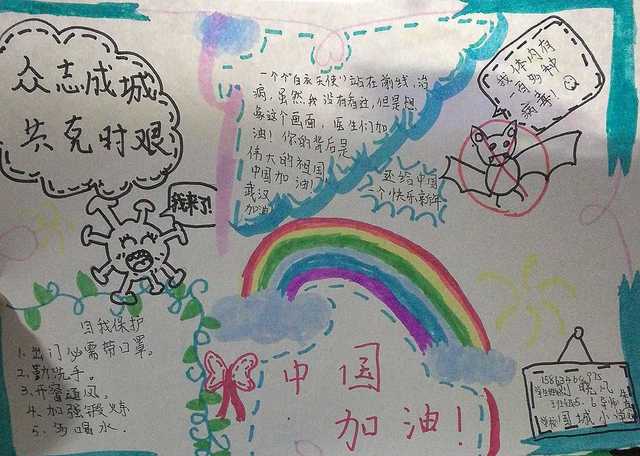 众志成城
共克时艰
一个个"白衣天使"站在前线,治
病,虽然我没有看过,但是想
象这个画面,医生们加
油!你的背后是
伟大的祖国
中国加油!
武汉
加油
我体内有
一百多种
病毒!
我来了!
还给中国
一个快乐新年
自我保护
1.出门必需带口罩。
2.勤洗手。
3.开窗通风。
4.加强锻炼
5.多喝水。
中国
加油!